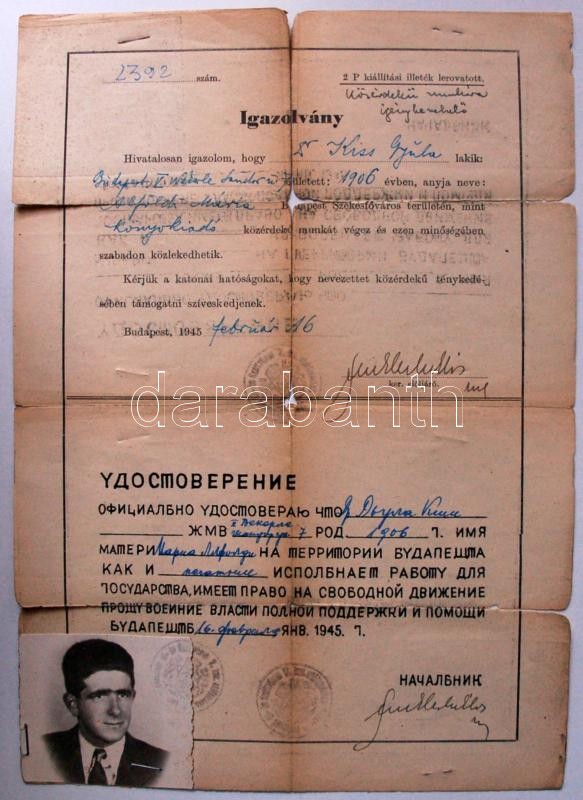 2392 szám.
2 P kiállítási illeték lerovatott.
Közérdekű munkára
igénybevehető
Igazolvány
Hivatalosan igazolom, hogy Dr Kiss Gyula lakik:
Budapest, V. Wekerle Sándor u 7 született: 1906 évben, anyja neve:
Alföldi Mária Budapest Székesfőváros területén, mint
könyvkiadó közérdekű munkát végez és ezen minőségében
szabadon közlekedhetik.
Kérjük a katonai hatóságokat, hogy nevezettet közérdekű ténykedé-
sében támogatni szíveskedjenek.
Budapest, 1945 február 16
ker. elöljáró.
darabanth
УДОСТОВЕРЕНИЕ
ОФИЦИАЛЬНО УДОСТОВЕРАЮ ЧТО Др Дьула Киш
ЖМВ V Векерле 7 РОД 1906 Г. ИМЯ
МАТЕРИ Мариа Алфолди НА ТЕРРИТОРИИ БУДАПЕШТА
КАК И ИСПОЛБНАЕТ РАБОТУ ДЛЯ
ГОСУДАРСТВА, ИМЕЕТ ПРАВО НА СВОБОДНОЙ ДВИЖЕНИЕ
ПРОШУ ВОЕИНИЕ ВЛАСТИ ПОЛНОЙ ПОДДЕРЖКИ И ПОМОЩИ
БУДАПЕШТБ 16 февраля ЯНВ. 1945. Г.
НАЧАЛЬНИК